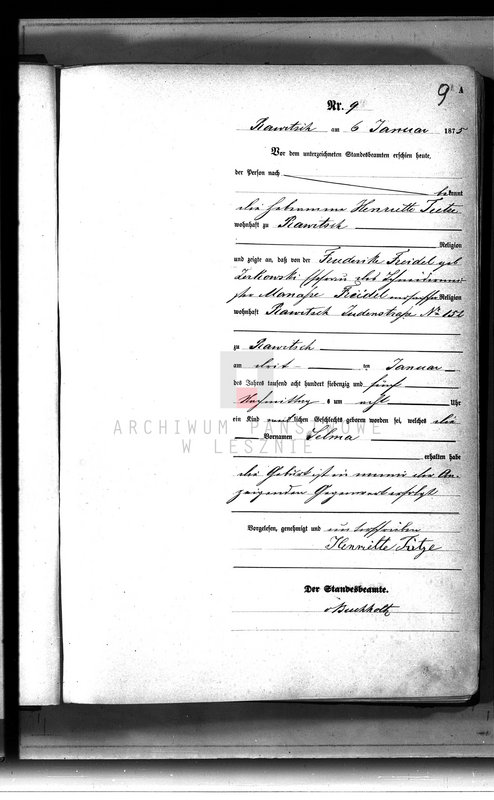 9 A
Nr. 9
Rawitsch am 6 Januar 1875
Vor dem unterzeichneten Standesbeamten erschien heute,
der Person nach
bekannt
die Hebamme Henriette Tietze
wohnhaft zu Rawitsch
Religion
und zeigte an, daß von der Friederike Freidel geb
Zerkowski Ehefrau des Schneidermei
ster Manasse Freidel mosaischer Religion
wohnhaft Rawitsch Judenstraße No 152
zu Rawitsch
am drit ten Januar
des Jahres tausend acht hundert siebenzig und fünf
Nachmittag s um acht Uhr
ein Kind weiblichen Geschlechts geboren worden sei, welches die
Vornamen Selma
erhalten habe
die Geburt ist in der An-
zeigenden Gegenwart erfolgt
ARCHIWUM PAŃSTWOWE
W LESZNIE
Vorgelesen, genehmigt und unterschrieben
Henriette Tietze
Der Standesbeamte.
Buchholtz